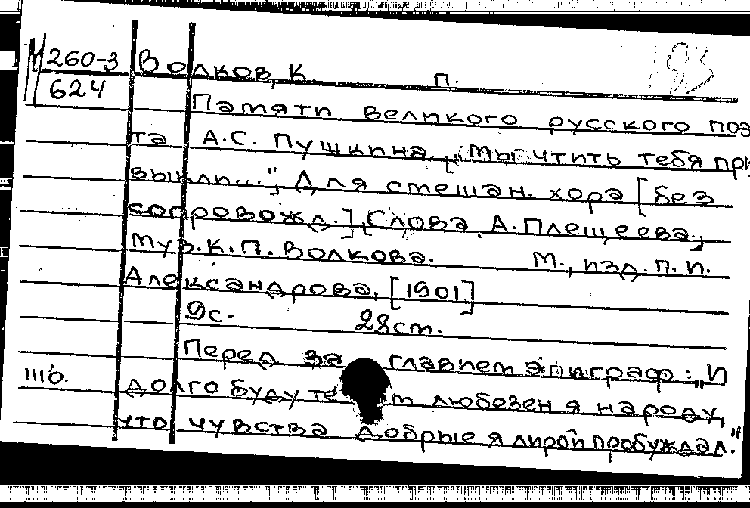 М 260-3 Волков, К. П. 193
624
Памяти великого русского поэ
та А.С. Пушкина. „Мы чтить тебя при
выкли...", Для смешан. хора [без
сопровожд.], Слова А. Плещеева,
Муз. К.П. Волкова. М., изд. П.И.
Александрова, [1901]
9с. 28ст.
Перед заглавием эпиграф: „И
долго буду те м любезен я народу,
что чувства добрые я лирой пробуждал."